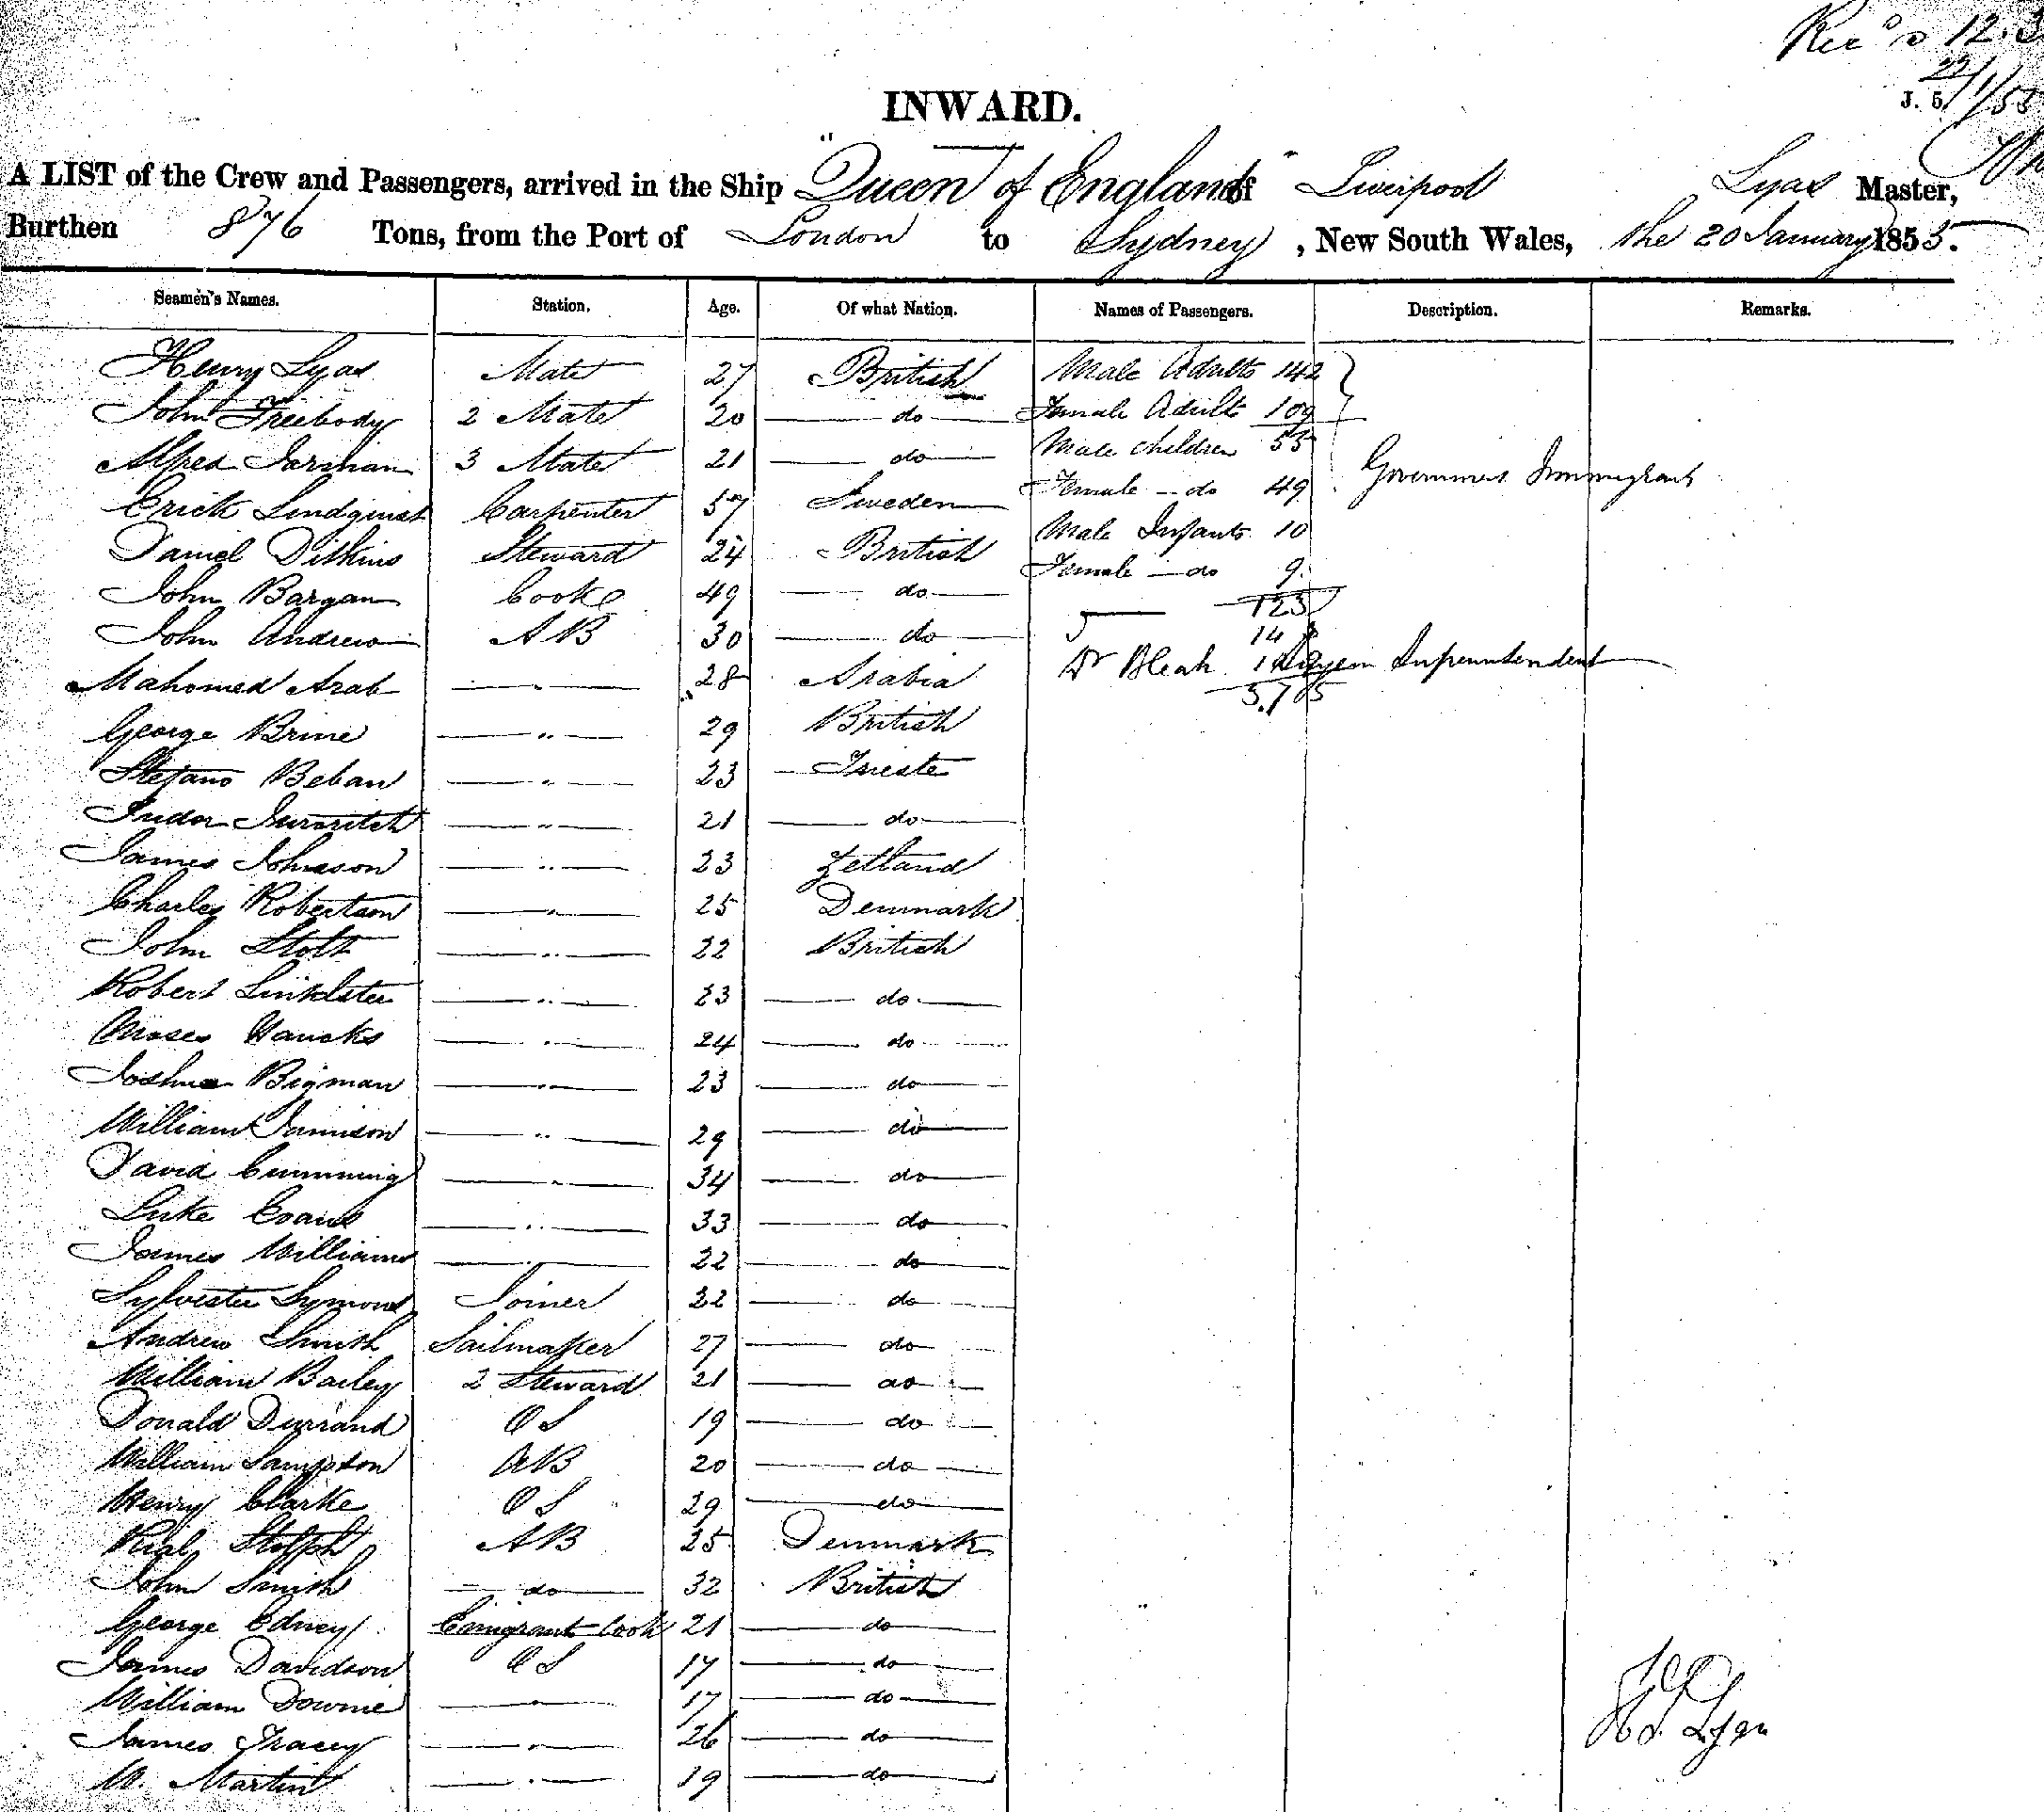 Rec'd 12.3
22/1/53
J. 5.
INWARD.
A LIST of the Crew and Passengers, arrived in the Ship "Queen of England" of Liverpool Lyas Master,
Burthen 876 Tons, from the Port of London to Sydney, New South Wales, the 20 January 1853.
Seamen's Names. Station. Age. Of what Nation. Names of Passengers. Description. Remarks.
Henry Lyas Mate 27 British Male Adults 142
John Freebody 2 Mate 20 do Female Adults 109
Alfred Jarman 3 Mate 21 do Male Children 55
Government Immigrants
Erick Lindquist Carpenter 57 Sweden Female do 49
Daniel Dilkins Steward 24 British Male Infants 10
John Bargan Cook 49 do Female do 9
123
John Andrew AB 30 do 14
Mahomed Arab " 28 Arabia Dr Bleak Surgeon Superintendent
George Brine " 29 British
Stefano Beban " 23 Trieste
Tudor " 21 do
James Johnson " 23 Zetland
Charles Robertson " 25 Denmark
John Stott " 22 British
Robert Linklater " 23 do
Moses Hawks " 24 do
Joshua Bigman " 23 do
William Jamison " 29 do
David Cumming " 34 do
Luke Evans " 33 do
James Williams " 22 do
Sylvester Symons Joiner 22 do
Andrew Smith Sailmaker 27 do
William Bailey 2 Steward 21 do
Donald Durrand OS 19 do
William Sampson AB 20 do
Henry Clarke OS 29 do
Stolph AB 25 Denmark
John Smith do 32 British
George Edney Emigrant Cook 21 do
James Davidson OS 17 do
William Downie " 17 do
James Tracey " 26 do
W. Martin " 19 do